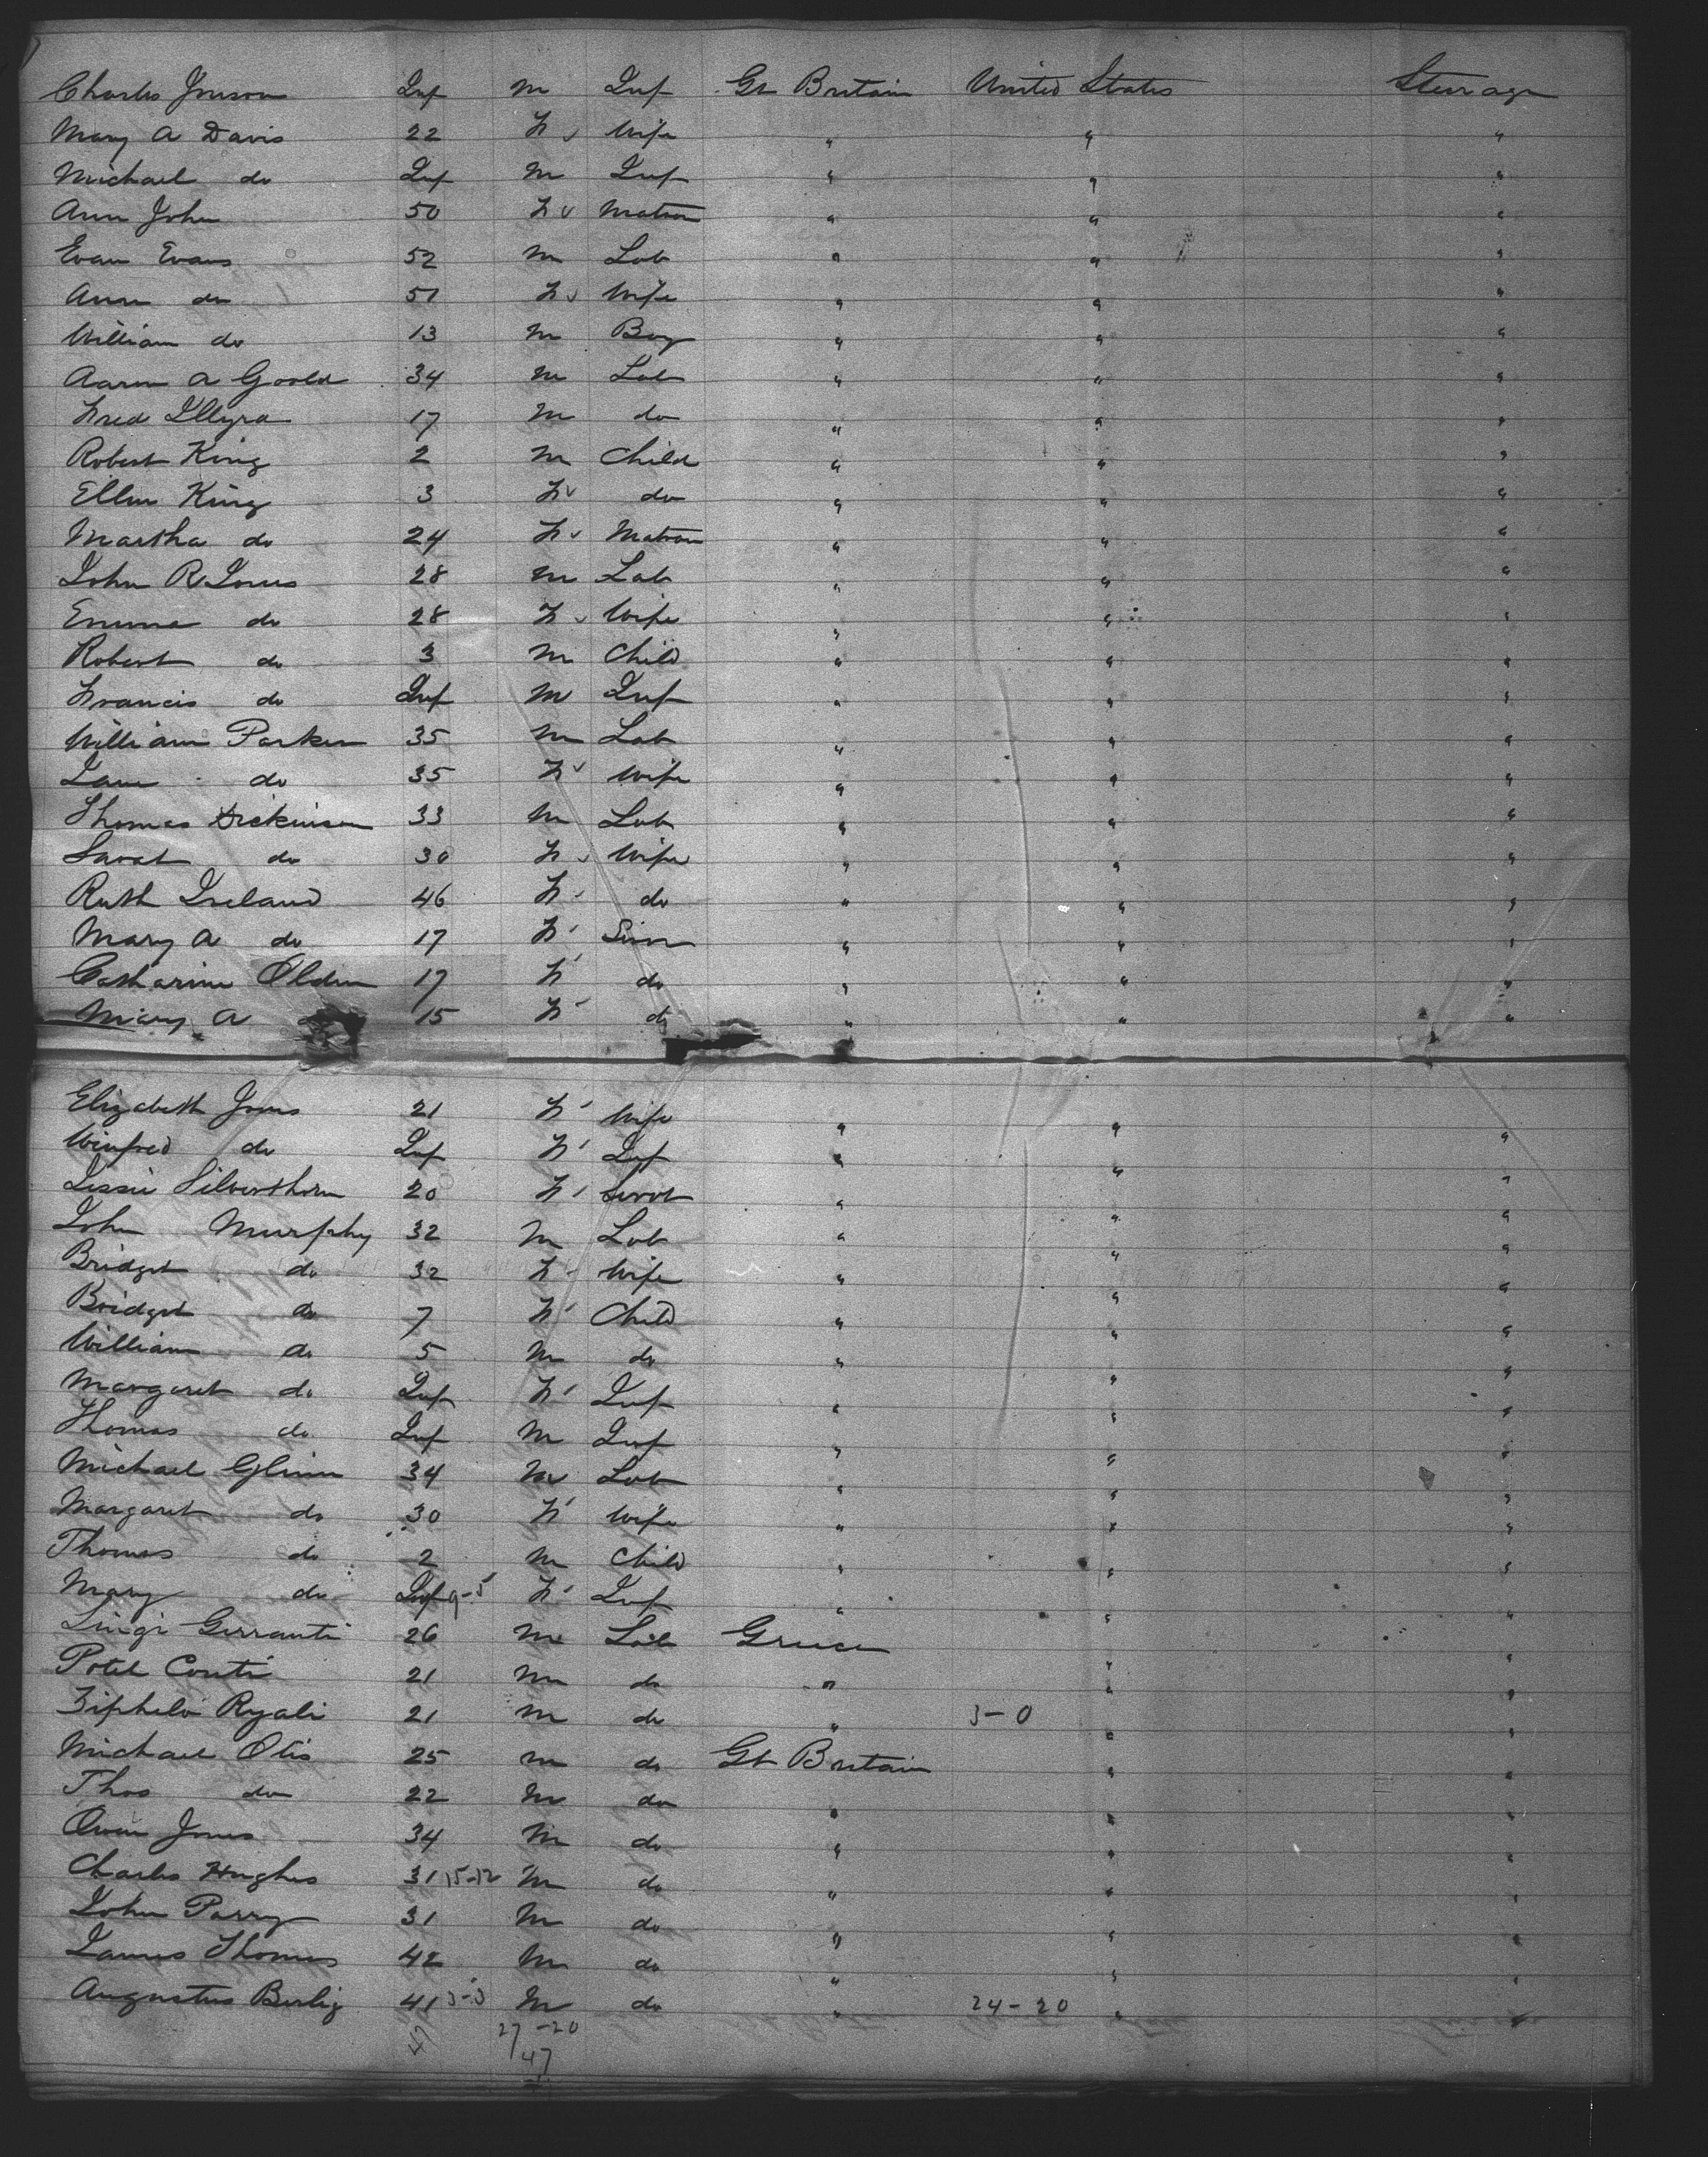 Charles Jonson Inf m Inf Gt Britain United States Steerage
Mary A Davis 22 F Wife " " "
Michael do Inf m Inf " " "
Ann John 50 F Matron " " "
Evan Evans 52 m Lab " " "
Ann do 51 F Wife " " "
William do 13 m Boy " " "
Aaron A Goold 34 m Lab " " "
Fred 17 m do " " "
Robert King 2 m Child " " "
Ellen King 3 F do " " "
Martha do 24 F Matron " " "
John R Jones 28 m Lab " " "
Emma do 28 F Wife " " "
Robert do 3 m Child " " "
Francis do Inf m Inf " " "
William Parker 35 m Lab " " "
Jane do 35 F Wife " " "
Thomas Dickinson 33 m Lab " " "
Sarah do 30 F Wife " " "
Ruth Ireland 46 F do " " "
Mary A do 17 F " " "
Catharine Olden 17 F do " " "
Mary A 15 F d " " "
Elizabeth Jones 21 F Wife " " "
Winfred do Inf F Inf " " "
Jessie Silverthorn 20 F Servt " " "
John Murphy 32 m Lab " " "
Bridget do 32 F Wife " " "
Bridget do 7 F Child " " "
William do 5 m do " " "
Margaret do Inf F Inf " " "
Thomas do Inf m Inf " " "
Michael Glinn 34 m Lab " " "
Margaret do 30 F Wife " " "
Thomas do 2 m Child " " "
Mary do Inf 9-5 F Inf " " "
Luigi Gerranti 26 m Lab Greece " "
Potel Conti 21 m do " " "
Ryali 21 m do " 3-0 " "
Michael Otis 25 m do Gt Britain " "
Thos do 22 m do " " "
Owen Jones 34 m do " " "
Charles Hughes 31 15-12 m do " " "
John Parry 31 m do " " "
James Thomas 42 m do " " "
Augustus 41 3-3 m do " 24-20 " "
47 27-20
47